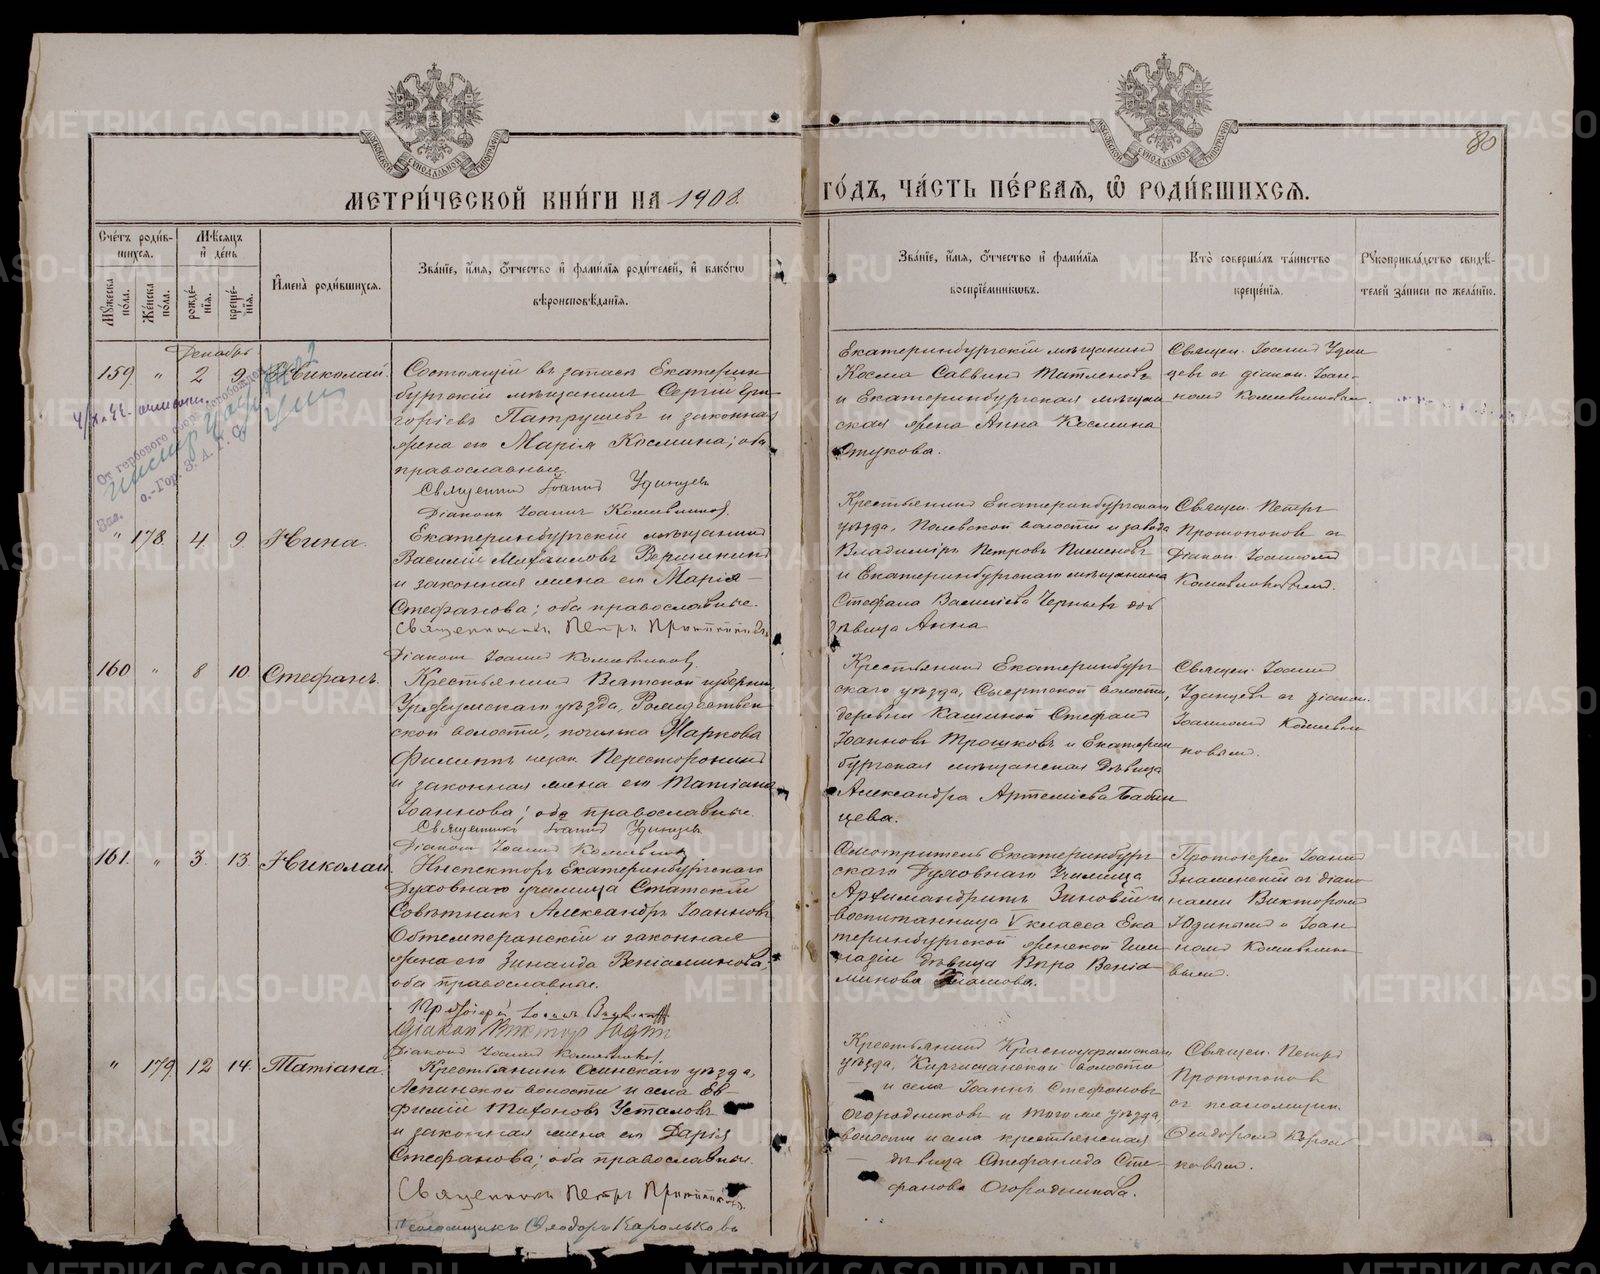 80
МЕТРИ́ЧЕСКОЙ КНИ́ГИ НА 1908.
ГО́ДЪ, ЧА́СТЬ ПЕ́РВАЯ, Ѡ҆ РОДИ́ВШИХСЯ.
Сче́тъ роди́в-
шихся.
Мѹ́жеска по́ла.
Же́нска по́ла.
Мѣ́сяцъ и҆ де́нь
рожде́нїя.
креще́нїя.
И҆мена̀ роди́вшихся.
Зва́нїе, и҆́мя, ѻ҆́тчество и҆ фами́лїя роди́телей, и҆ како́гѡ
вѣроисповѣ́данїя.
Зва́нїе, и҆́мя, ѻ҆́тчество и҆ фами́лїя
воспрїе́мниковъ.
Кто̀ соверша́лъ та́инство
креще́нїя.
Рѹкоприкла́дство свидѣ́-
телей за́писи по жела́нїю.
Декабрь
159 " 2 9 Николай.
Состоящій въ запасѣ Екатерин-
бургскій мѣщанинъ Сергій Гри-
горіевъ Патрушевъ и законная
жена его Марія Космина; оба
православные.
Священникъ Іоаннъ Удинцевъ
Діаконъ Іоаннъ Комевников.
Екатеринбургскій мѣщанинъ
Косма Саввинъ
и Екатеринбургская мѣщан
ская жена Анна Космина
Стукова.
Священ. Іоаннъ Удин
цевъ съ діакон. Іоан-
номъ
" 178. 4. 9. Нина.
Екатеринбургскій мѣщанинъ
Василій Михаиловъ Вершининъ
и законная жена его Марія
Стефанова; оба православные.
Священникъ Петръ
Діаконъ Іоаннъ
Крестьянинъ Екатеринбургскаго
уѣзда, Полевской волости и завода
Владиміръ Петровъ Пименовъ
и Екатеринбургскаго мѣщанина
Стефана Василіева Черныхъ дочь
дѣвица Анна
Священ. Петръ
Протопоповъ съ
Діакон. Іоанномъ
160 " 8 10. Стефанъ.
Крестьянинъ Вятской губерніи,
Уржумскаго уѣзда, Рождествен-
ской волости, починка Маркова
Филиппъ Пересторонинъ
и законная жена его Татіана
Іоаннова; оба православные.
Священникъ Іоаннъ Удинцевъ
Діаконъ Іоаннъ
Крестьянинъ Екатеринбург
скаго уѣзда, Сысертской волости,
деревни Кашиной Стефанъ
Іоанновъ Трошковъ и Екатерин
бургская мѣщанская дѣвица
Александра Артеміева Бабин
цева.
Священ. Іоаннъ
Удинцевъ съ діакон.
Іоанномъ
161. " 3. 13. Николай.
Инспекторъ Екатеринбургскаго
Духовнаго училища Статскій
Совѣтникъ Александръ Іоанновъ
Обтемперанскій и законная
жена его Зинаида Веніаминова;
оба православные.
Діаконъ Викторъ Юдинъ
Діаконъ Іоаннъ
Смотритель Екатеринбург
скаго Духовнаго Училища
Архимандритъ Зиновій и
воспитанница V класса Ека
теринбургской женской Гим
назіи дѣвица Вера Веніа-
минова
Протоіерей Іоаннъ
Знаменскій съ діако
нами Викторомъ
Юдинымъ и Іоан-
номъ
" 179. 12 14. Татіана.
Крестьянинъ Осинскаго уѣзда,
Аспинской волости и села Ев-
фимій Тихоновъ Усталовъ
и законная жена его Дарія
Стефанова; оба православные.
Священникъ Петръ
Псаломщикъ Ѳеодоръ Карольковъ
Крестьянинъ Красноуфимскаго
уѣзда, Киргишанской волости
и села Іоаннъ Стефановъ
Огородниковъ и того же уѣзда,
волости и села крестьянская
дѣвица Стефанида Сте-
фанова Огородникова.
Священ. Петръ
Протопоповъ
съ псаломщик.
Ѳеодоромъ Король
ковым.
METRIKI.GASO-URAL.RU